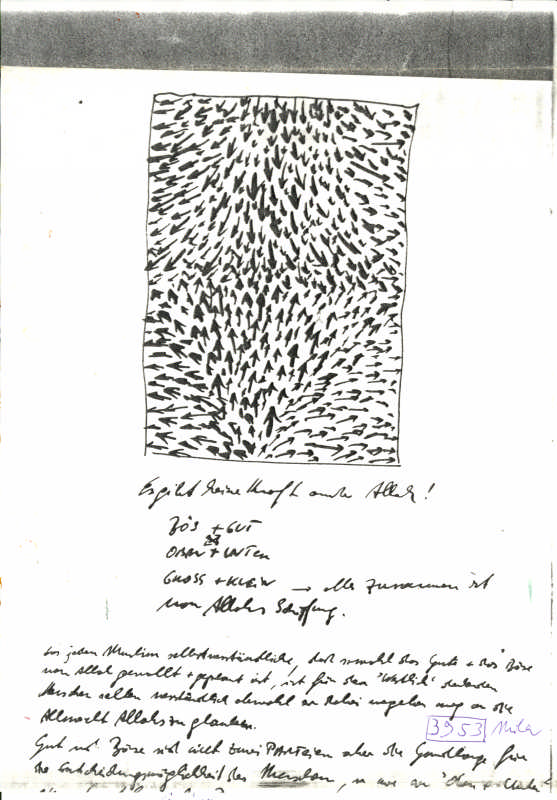 Es gibt keine Kraft außer Allah!
BÖS + GUT
OBEN + UNTEN
GROSS + KLEIN → alle zusammen ist
von Allahs Schöpfung.
das jedem Muslim selbstverständliche, daß sowohl das Gute + das Böse
von Allah gewollt + geplant ist, ist für den "westlich" denkenden
Menschen selten verständlich
Allmacht Allahs zu glauben.
3953
Gut und Böse sind nicht zwei PARTEIEN aber die Grundlage für
die Entscheidungsmöglichkeit des Menschen, so wie